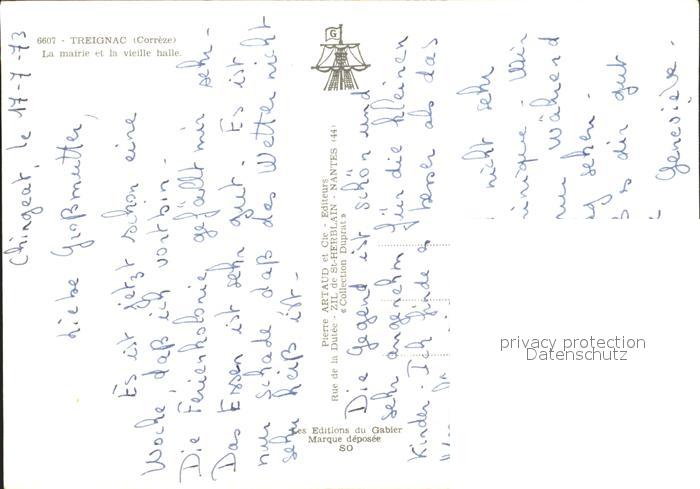 6607 - TREIGNAC (Corrèze)
La mairie et la vieille halle.
G
Chingeat, le 17-7-73
Liebe Großmutter,
Es ist jetzt schon eine
Woche, daß ich
Die Ferienkolonie gefällt mir sehr -
Das Essen ist sehr gut. Es ist
nur schade daß das Wetter nicht
sehr heiß ist -
Pierre ARTAUD et Cie - Editeurs
Rue de la Dutée - ZIL de St-HERBLAIN - NANTES (44)
« Collection Duprat »
Les Editions du Gabier
Marque déposée
SO
Die Gegend ist schön und
sehr angenehm für die kleinen
Kinder. Ich finde besser als das
nicht sehr
Wir
Während
sehen -
dir gut
Geneviève -
privacy protection
Datenschutz